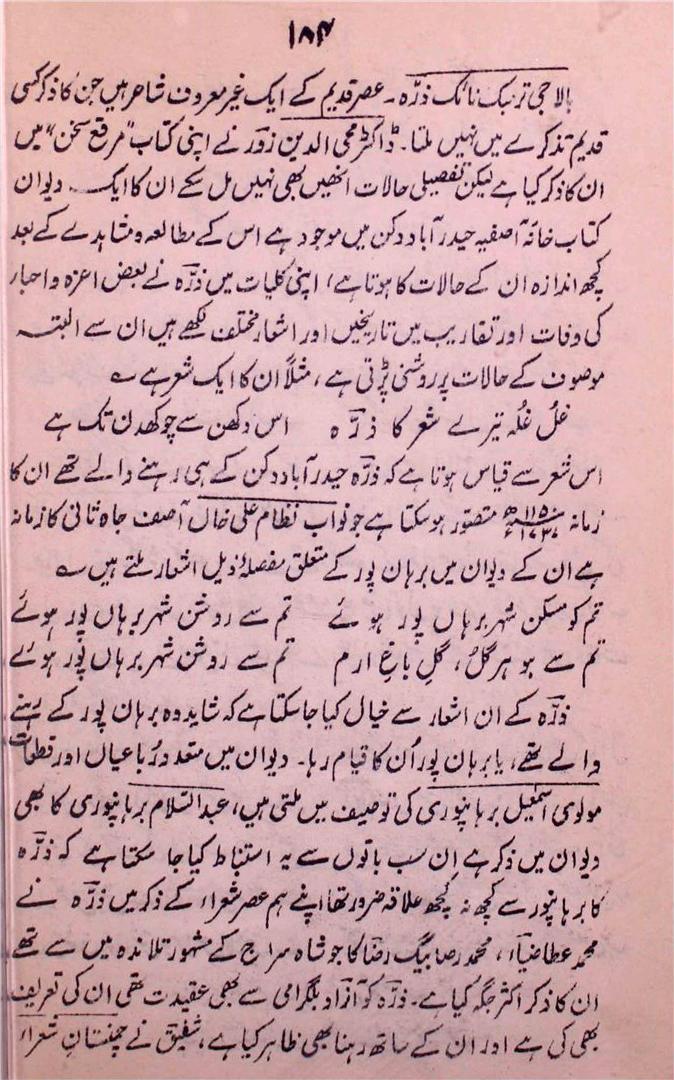 ۱۸۴
بالاجی ترنبک نائک ذرّہ ۔ عصر قدیم کے ایک غیر معروف شاعر ہیں جن کا ذکر کسی
قدیم تذکرے میں نہیں ملتا۔ ڈاکٹر محی الدین زورؔ نے اپنی کتاب "مرقع سخن" میں
ان کا ذکر کیا ہے لیکن تفصیلی حالات انھیں بھی نہیں مل سکے ان کا ایک دیوان
کتاب خانۂ آصفیہ حیدرآباد دکن میں موجود ہے اس کے مطالعہ و مشاہدے کے بعد
کچھ اندازہ ان کے حالات کا ہوتا ہے، اپنی کلیات میں ذرّہ نے بعض اعزہ و احبار
کی وفات اور تقاریب میں تاریخیں اور اشعار مختلف لکھے ہیں ان سے البتہ
موصوف کے حالات پر روشنی پڑتی ہے، مثلاً ان کا ایک شعر ہے ؎
غل غلہ تیرے شعر کا ذرّہ اس دکھن سے چوکھدن تک ہے
اس شعر سے قیاس ہوتا ہے کہ ذرّہ حیدرآباد دکن کے ہی رہنے والے تھے ان کا
زمانہ ۱۱۵۰ھ ۱۷۳۷ء متصور ہوسکتا ہے جو نواب نظام علی خاں آصف جاہ ثانی کا زمانہ
ہے ان کے دیوان میں برہان پور کے متعلق مفصلۂ ذیل اشعار ملتے ہیں ؎
تم کو مسکن شہر برہاں پور ہوئے تم سے روشن شہر برہاں پور ہوئے
تم سے بو ہر گُل، گلِ باغِ ارم تم سے روشن شہر برہاں پور ہوئے
ذرّہ کے ان اشعار سے خیال کیا جاسکتا ہے کہ شاید وہ برہان پور کے رہنے
والے تھے، یا برہان پور اُن کا قیام رہا۔ دیوان میں متعدد رُباعیاں اور قطعات
مولوی اسمٰعیل برہانپوری کی توصیف میں ملتی ہیں، عبدالسّلام برہانپوری کا بھی
دیوان میں ذکر ہے اِن سب باتوں سے یہ استنباط کیا جا سکتا ہے کہ ذرّہ
کا برہانپور سے کچھ نہ کچھ علاقہ ضرور تھا اپنے ہم عصر شعراء کے ذکر میں ذرّہ نے
محمد عطا ضیاؔء، محمد رضا بیگ رضؔا کا جو شاہ سراج کے مشہور تلامذہ میں سے تھے
ان کا ذکر اکثر جگہ کیا ہے۔ ذرّہ کو آزاد بلگرامی سے بھی عقیدت تھی ان کی تعریف
بھی کی ہے اور ان کے ساتھ رہنا بھی ظاہر کیا ہے، شفیقؔ نے چمنستانِ شعراء